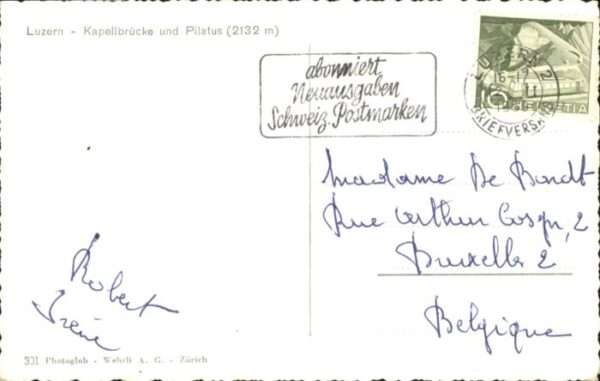 Luzern - Kapellbrücke und Pilatus (2132 m)
abonniert
Neuausgaben
Schweiz. Postmarken
LUZERN 2
BRIEFVERSAND
10 HELVETIA
Madame De Bondt
Rue Arthur 2
Bruxelles 2
Belgique
Robert
Irène
331 Photoglob - Wehrli A. G. - Zürich